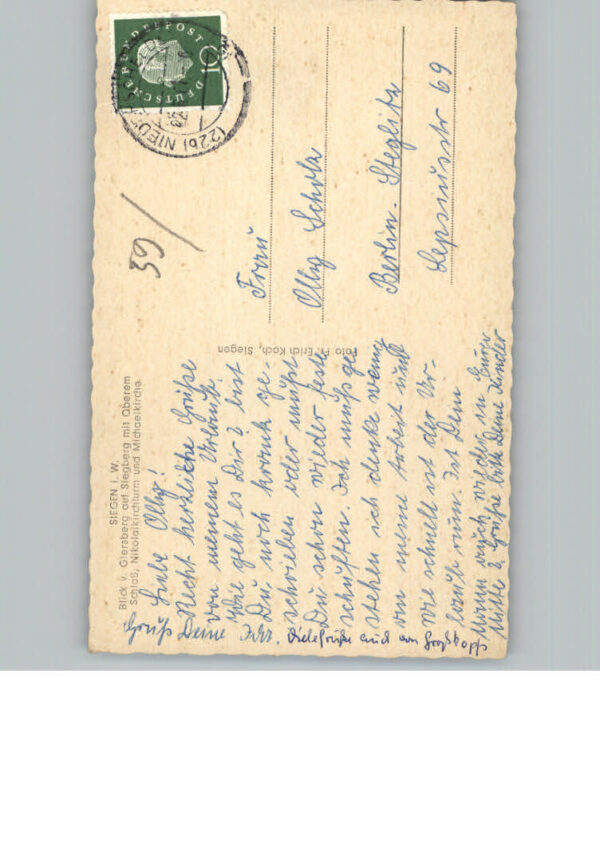 SIEGEN i. W.
Blick v. Giersberg auf Siegberg mit Oberem
Schloß, Nikolaikirchturm und Michaelkirche.
Liebe Olly!
Recht herzliche Grüße
von meinem Urlaub.
Wie geht es Dir? bist
Du noch krank ge-
schrieben oder mußt
Du schon wieder feste
schuften. Ich muß ge-
stehen ich denke wenig
an meine Arbeit und
wie schnell ist der Ur-
laub rum. Ist Dein
Mann auch wieder in Eurer
Mitte? Grüße bitte Deine Kinder
Gruß Deine
Viele Grüße auch von Großkopfs
Foto Fr. Erich Koch, Siegen
DEUTSCHE BUNDESPOST
10
(22b) NIEDER
59/
Frau
Olly Scholz
Berlin-Steglitz
Lepsiusstr 69